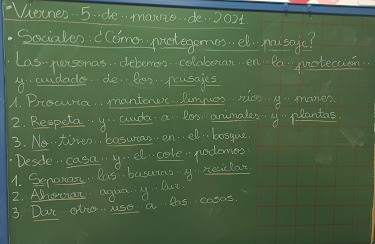 • Viernes 5 de marzo de 2021
• Sociales: ¿Cómo protegemos el paisaje?
• Las personas debemos colaborar en la protección
y cuidado de los paisajes.
1. Procura mantener limpios ríos y mares.
2. Respeta y cuida a los animales y plantas.
3. No tires basuras en el bosque.
• Desde casa y el cole podemos:
1. Separar las basuras y reciclar.
2. Ahorrar agua y luz.
3. Dar otro uso a las cosas.